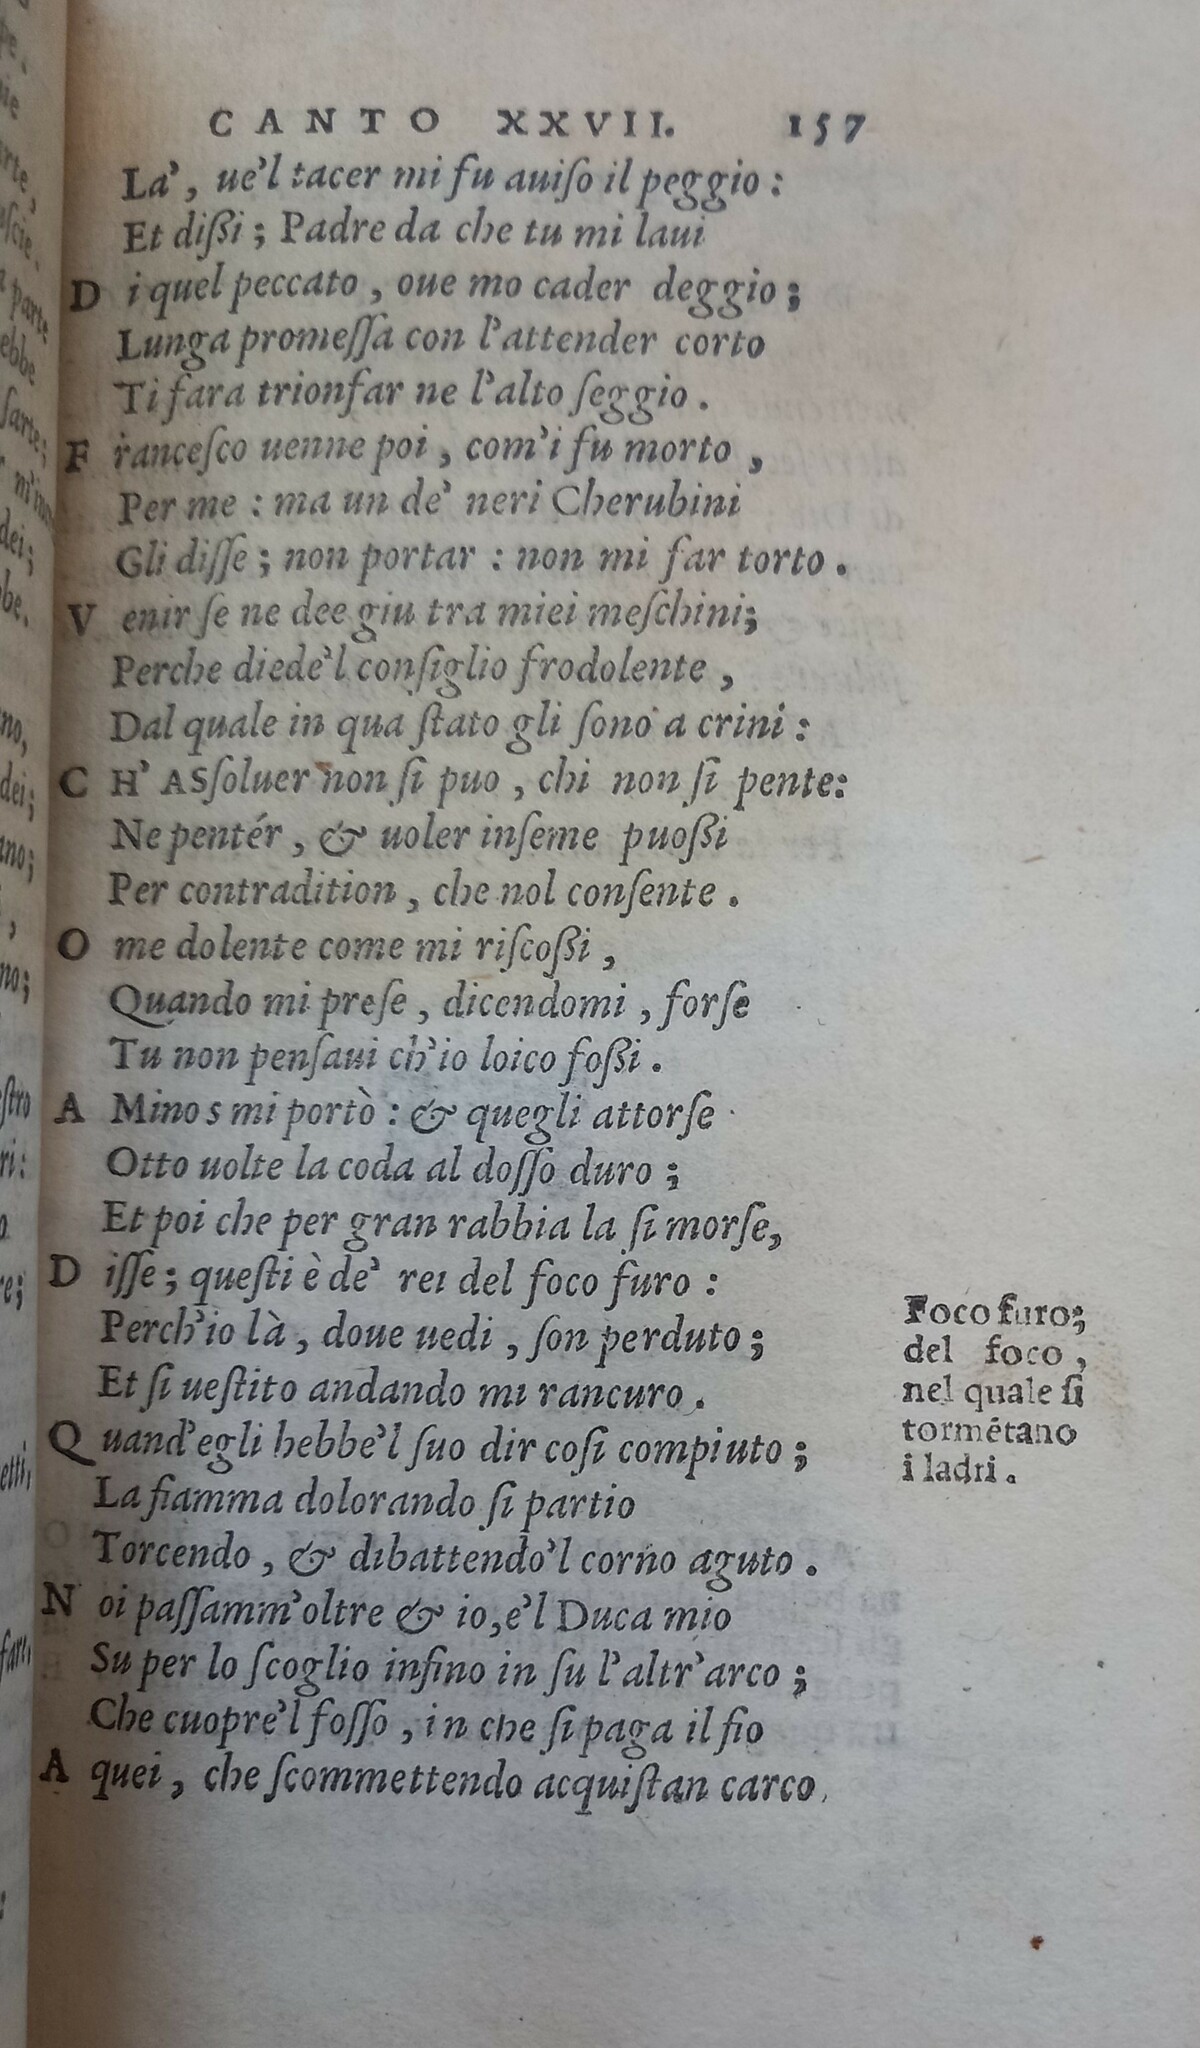 CANTO XXVII. 157
La', ue'l tacer mi fu auiſo il peggio:
Et dißi; Padre da che tu mi laui
D i quel peccato, oue mo cader deggio;
Lunga promeſſa con l'attender corto
Ti fara trionfar ne l'alto ſeggio.
F ranceſco uenne poi, com'i fu morto,
Per me: ma un de' neri Cherubini
Gli diſſe; non portar: non mi far torto.
V enir ſe ne dee giu tra miei meſchini;
Perche diede'l conſiglio frodolente,
Dal quale in qua ſtato gli ſono a crini:
C H' ASſoluer non ſi puo, chi non ſi pente:
Ne pentér, & uoler inſeme puoßi
Per contradition, che nol conſente.
O me dolente come mi riſcoßi,
Quando mi preſe, dicendomi, forſe
Tu non penſaui ch'io loico foßi.
A Minos mi portò: & quegli attorſe
Otto uolte la coda al doſſo duro;
Et poi che per gran rabbia la ſi morſe,
D iſſe; queſti è de' rei del foco furo:
Perch'io là, doue uedi, ſon perduto;
Et ſi ueſtito andando mi rancuro.
Q uand'egli hebbe'l ſuo dir coſi compiuto;
La fiamma dolorando ſi partio
Torcendo, & dibattendo'l corno aguto.
N oi paſſamm'oltre & io, e'l Duca mio
Su per lo ſcoglio infino in ſu l'altr'arco;
Che cuopre'l foſſo, in che ſi paga il fio
A quei, che ſcommettendo acquiſtan carco.
Foco furo;
del foco,
nel quale ſi
tormẽtano
i ladri.